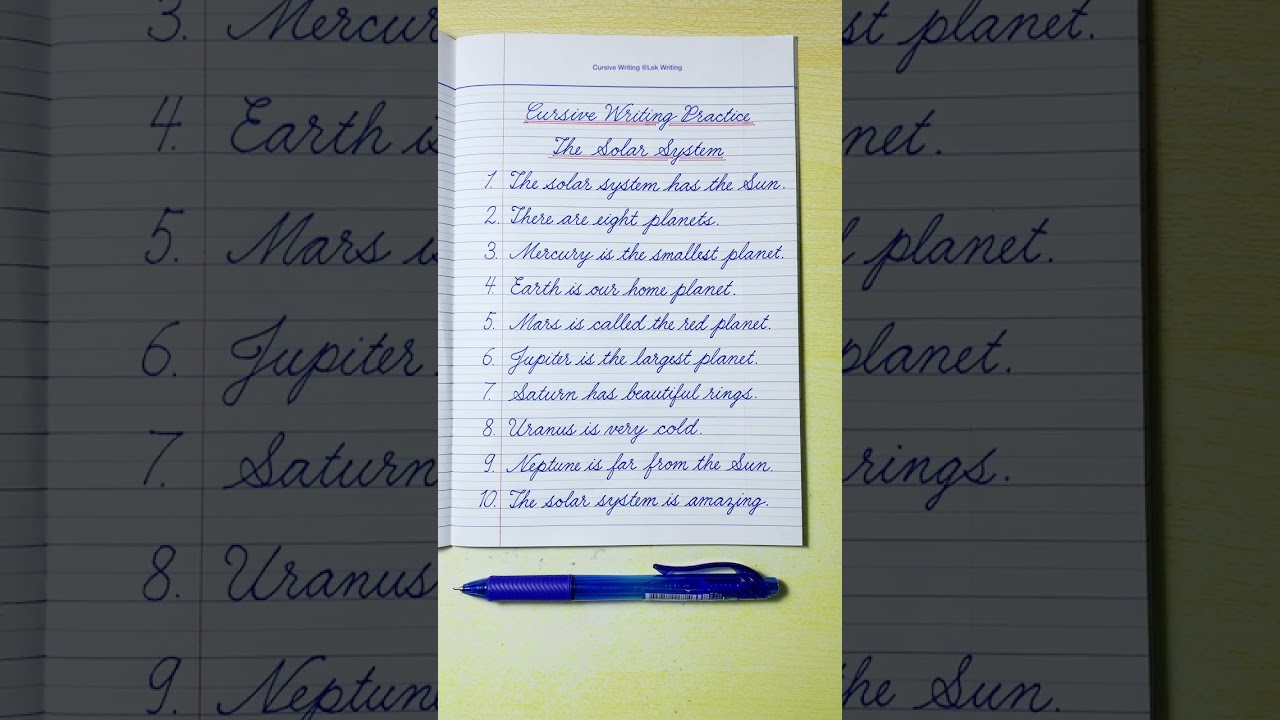 Cursive Writing @Lek Writing
Cursive Writing Practice
The Solar System
1. The solar system has the Sun.
2. There are eight planets.
3. Mercury is the smallest planet.
4 Earth is our home planet.
5. Mars is called the red planet.
6. Jupiter is the largest planet.
7. Saturn has beautiful rings.
8. Uranus is very cold.
9. Neptune is far from the Sun.
10. The solar system is amazing.